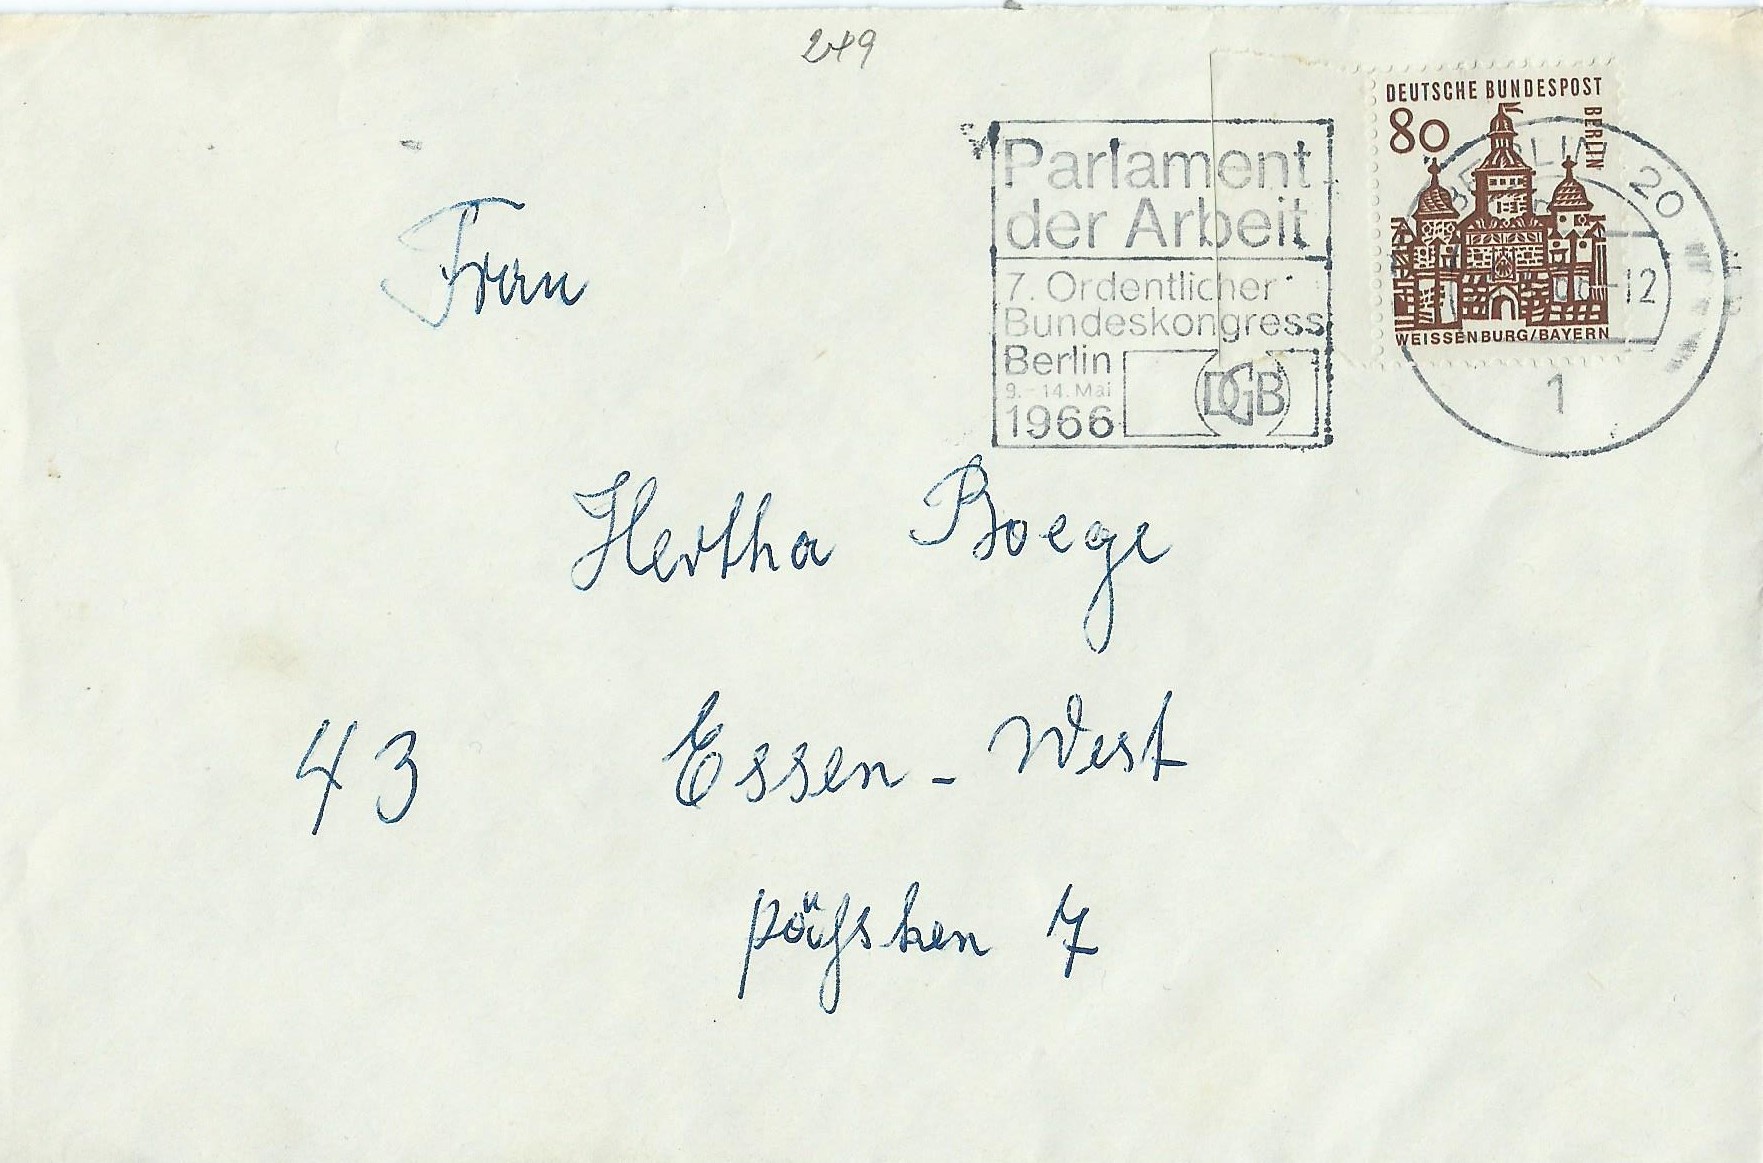 249
DEUTSCHE BUNDESPOST
BERLIN
80
WEISSENBURG/BAYERN
BERLIN 20
-12
1
Parlament
der Arbeit
7. Ordentlicher
Bundeskongress
Berlin
9.-14. Mai
1966
DGB
Frau
Hertha Boege
43 Essen-West
7